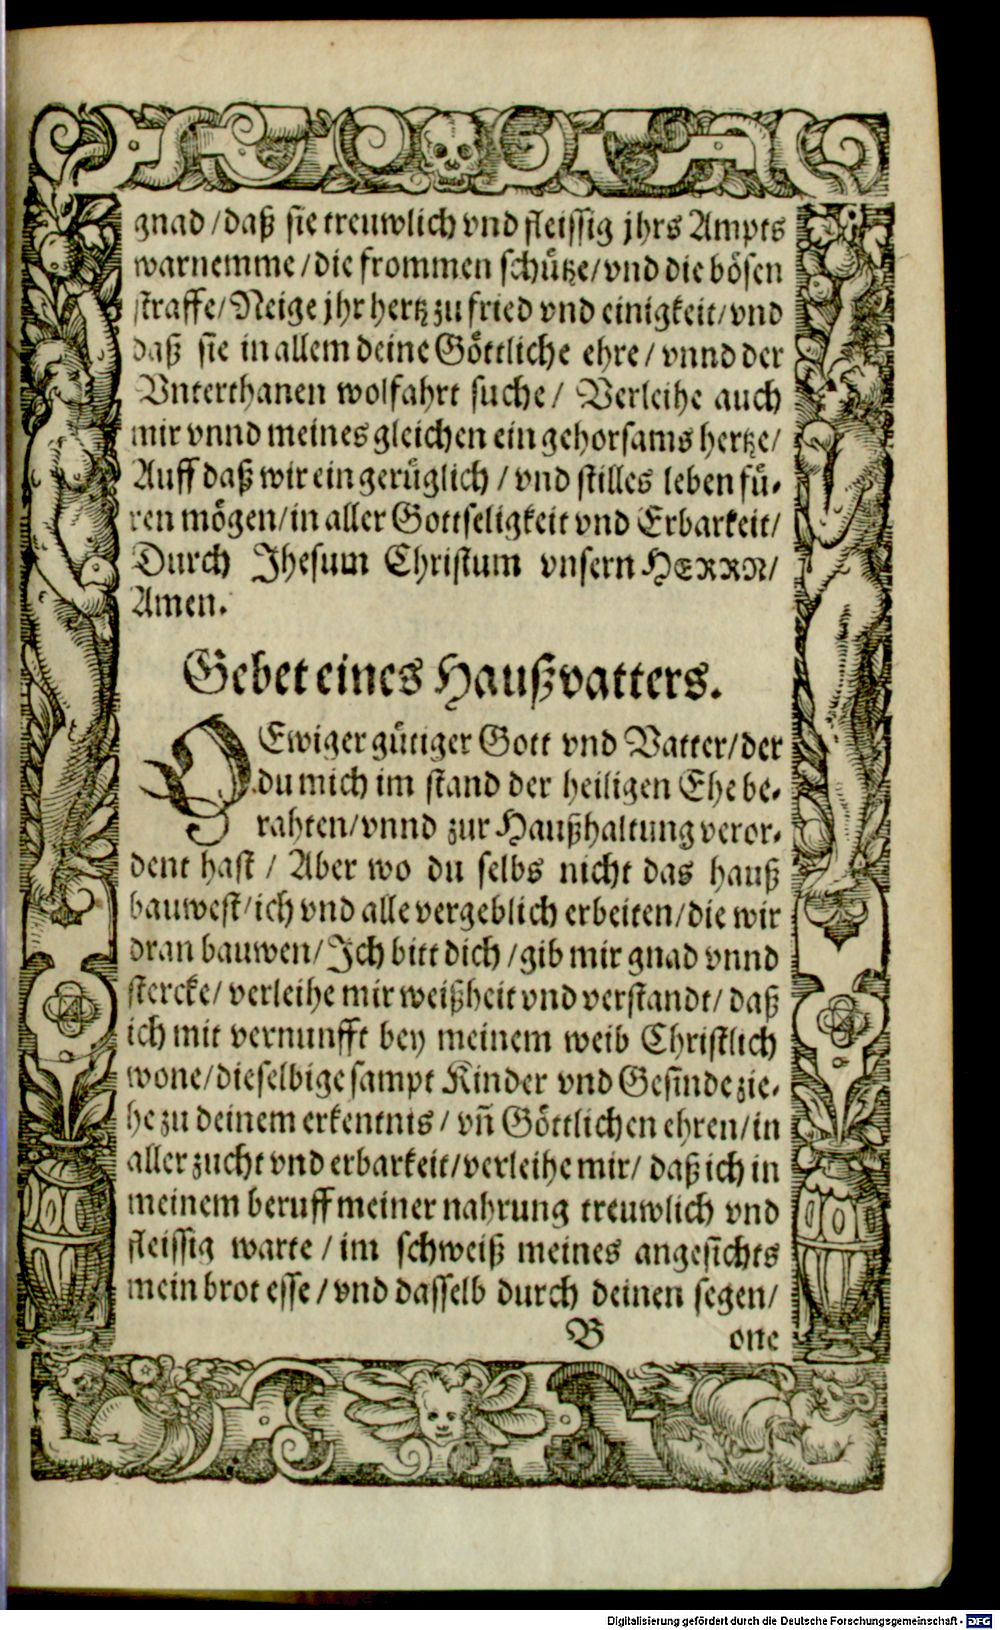 gnad / daß sie treuwlich vnd fleissig jhrs Ampts
warnemme / die frommen schütze / vnd die bösen
straffe / Neige jhr hertz zu fried vnd einigkeit / vnd
daß sie in allem deine Göttliche ehre / vnnd der
Vnterthanen wolfahrt suche / Verleihe auch
mir vnnd meines gleichen ein gehorsams hertze /
Auff daß wir ein gerüglich / vnd stilles leben fü-
ren mögen / in aller Gottseligkeit vnd Erbarkeit /
Durch Jhesum Christum vnsern HERRN /
Amen.
Gebet eines Haußvatters.
O Ewiger gütiger Gott vnd Vatter / der
du mich im stand der heiligen Ehe be-
rahten / vnnd zur Haußhaltung veror-
dent hast / Aber wo du selbs nicht das hauß
bauwest / ich vnd alle vergeblich erbeiten / die wir
dran bauwen / Ich bitt dich / gib mir gnad vnnd
stercke / verleihe mir weißheit vnd verstandt / daß
ich mit vernunfft bey meinem weib Christlich
wone / dieselbige sampt Kinder vnd Gesinde zie-
he zu deinem erkentnis / vñ Göttlichen ehren / in
aller zucht vnd erbarkeit / verleihe mir / daß ich in
meinem beruff meiner nahrung treuwlich vnd
fleissig warte / im schweiß meines angesichts
mein brot esse / vnd dasselb durch deinen segen /
B one
Digitalisierung gefördert durch die Deutsche Forschungsgemeinschaft - DFG